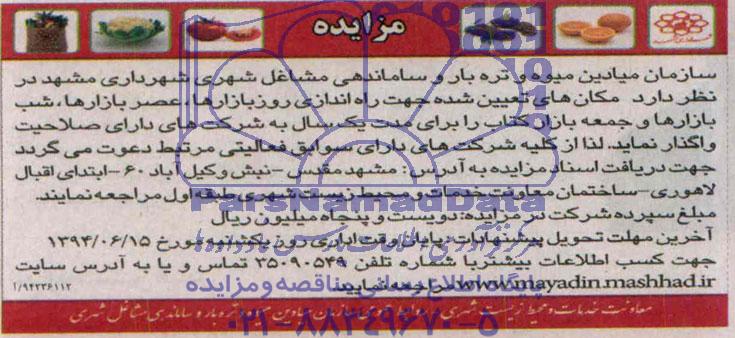 مزایده
سازمان میادین میوه و تره بار و ساماندهی مشاغل شهری شهرداری مشهد در
نظر دارد مکان های تعیین شده جهت راه اندازی روزبازارها، عصر بازارها، شب
بازارها و جمعه بازار کتاب را برای مدت یک سال به شرکت های دارای صلاحیت
واگذار نماید. لذا از کلیه شرکت های دارای سوابق فعالیتی مرتبط دعوت می گردد
جهت دریافت اسناد مزایده به آدرس: مشهد مقدس - نبش وکیل آباد ۶۰ - ابتدای اقبال
لاهوری - ساختمان معاونت خدمات و محیط زیست شهری طبقه اول مراجعه نمایند.
مبلغ سپرده شرکت در مزایده: دویست و پنجاه میلیون ریال
آخرین مهلت تحویل پیشنهادات: پایان وقت اداری روز یکشنبه مورخ ۱۳۹۴/۰۶/۱۵
جهت کسب اطلاعات بیشتر با شماره تلفن ۳۵۰۹۰۵۴۹ تماس و یا به آدرس سایت
www.mayadin.mashhad.ir مراجعه نمایید.
۱/۹۴۲۳۶۱۱۲
معاونت خدمات و محیط زیست شهری سازمان میادین میوه و تره بار و ساماندهی مشاغل شهری
ParsNamadData
پایگاه اطلاع رسانی مناقصه و مزایده
۰۲۱-۸۸۳۴۹۶۷۰-۵